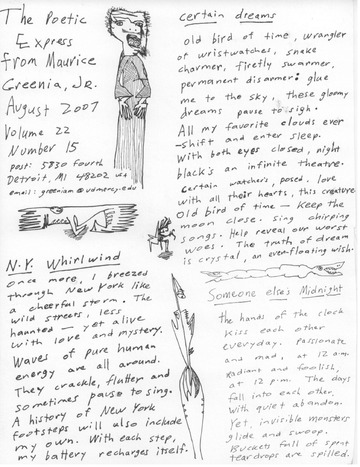 The Poetic
Express
from Maurice
Greenia, Jr.
August 2007
Volume 22
Number 15
post: 5830 Fourth
Detroit, Mi 48202 usa
email: greeniam@udmercy.edu
N.Y. Whirlwind
Once more, I breezed
through New York like
a cheerful storm. The
wild streets, less
haunted — yet alive
with love and mystery.
Waves of pure human
energy are all around.
They crackle, flutter and
sometimes pause to sing.
A history of New York
footsteps will also include
my own. With each step,
my battery recharges itself.
Certain dreams
old bird of time, wrangler
of wristwatches, snake
charmer, firefly swarmer,
permanent disarmer: glue
me to the sky, these gloomy
dreams pause to sigh.
All my favorite clouds ever
-shift and enter sleep.
With both eyes closed, night
black's an infinite theatre.
Certain watchers, posed. love
with all their hearts, this creature
old bird of time — Keep the
moon close. sing chirping
songs. Help reveal our worst
woes. The truth of dream
is crystal, an ever-floating wish.
Someone else's Midnight
the hands of the clock
Kiss each other
everyday, passionate
and mad, at 12 a.m.
Radiant and foolish,
at 12 p.m. The days
fall into each other,
with quiet abandon.
Yet, invisible monsters
glide and swoop.
Buckets full of spent
teardrops are spilled.